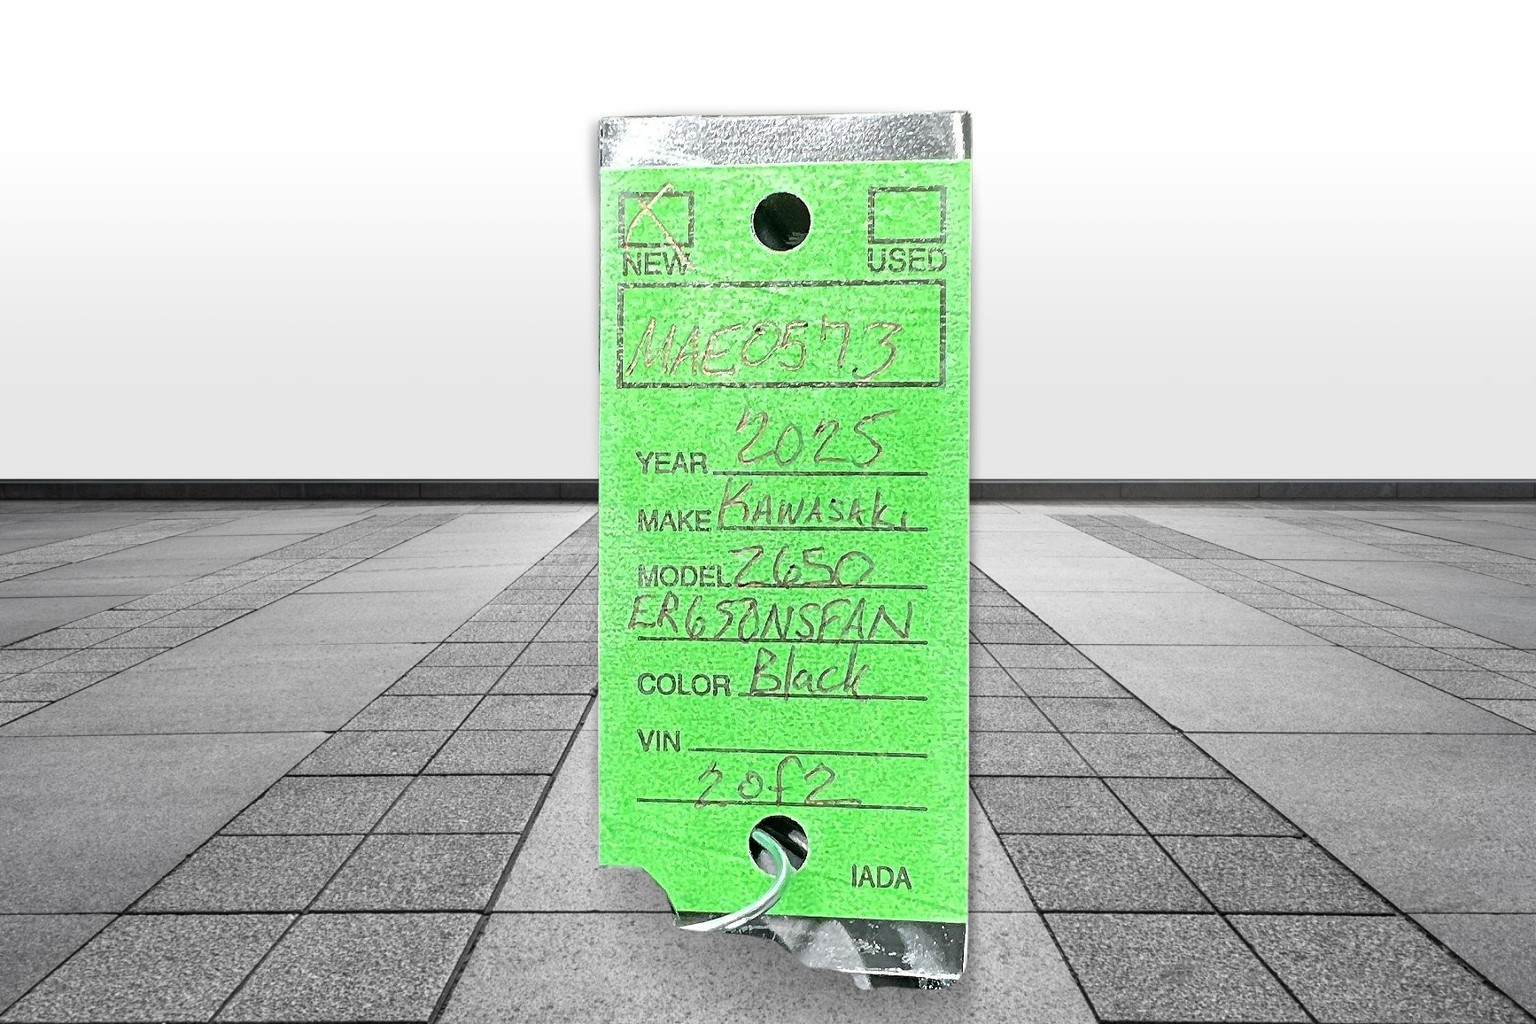 NEW USED
MAE0573
YEAR 2025
MAKE KAWASAKI
MODEL Z650
ER650NSFAN
COLOR Black
VIN
2 of 2
IADA